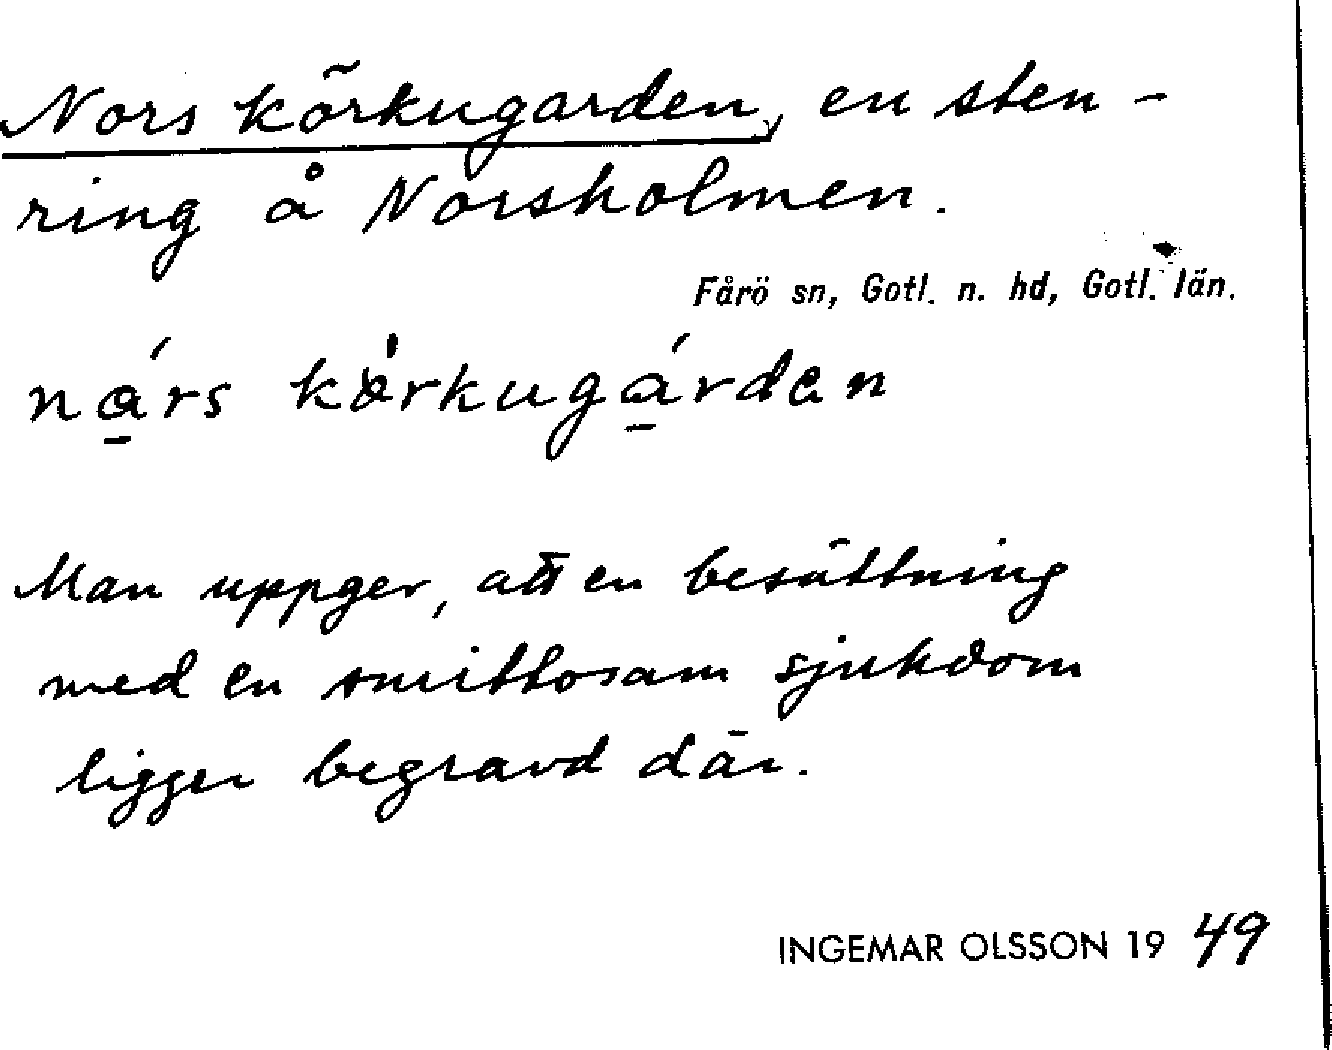 Nors körkugarden, en sten-
ring å Norsholmen.
Fårö sn, Gotl. n. hd, Gotl. län.
Man uppger, att en besättning
med en smittosam sjukdom
ligger begravd där.
INGEMAR OLSSON 1949